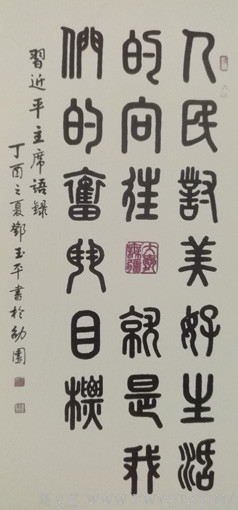 人民對美好生活
的向往就是我
們的奮鬥目標
習近平主席语録
丁酉之夏鄧玉平書於幼園